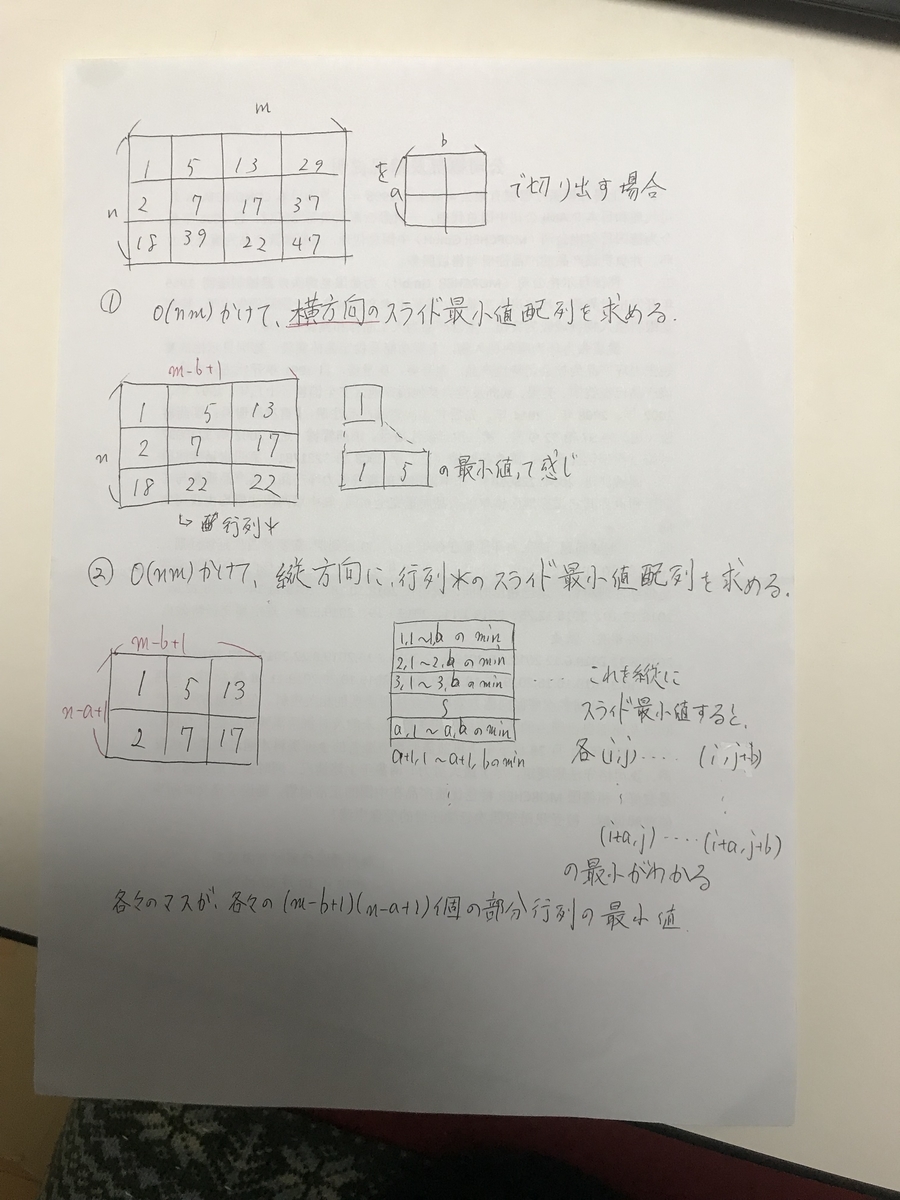 m
b
1 5 13 29
を
n 2 7 17 37
a
で切り出す場合
18 39 22 47
① O(nm)かけて、横方向のスライド最小値配列を求める.
m-b+1
1 5 13
1
n 2 7 17
1 5 の最小値、って感じ
18 22 22
↳ 行列*
② O(nm)かけて、縦方向に、行列*のスライド最小値配列を求める.
m-b+1
n-a+1
1 5 13
2 7 17
1,1~1,bのmin
2,1~2,bのmin
3,1~3,bのmin
a,1~a,bのmin
a+1,1~a+1,bのmin
..... これを縦に
スライド最小値すると、
各(i,j)..... (i,j+b)
(i+a,j)..... (i+a,j+b)
の最小がわかる
各々のマスが、各々の(m-b+1)(n-a+1)個の部分行列の最小値